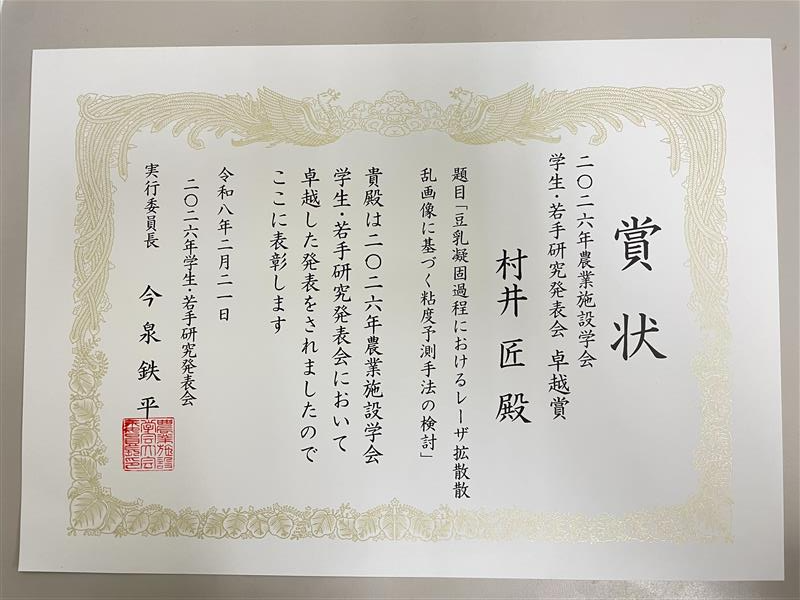 賞状
二〇二六年農業施設学会
学生・若手研究発表会 卓越賞
村井 匠 殿
題目「豆乳凝固過程におけるレーザ拡散散
乱画像に基づく粘度予測手法の検討」
貴殿は二〇二六年農業施設学会
学生・若手研究発表会において
卓越した発表をされましたので
ここに表彰します
令和八年二月二一日
二〇二六年学生・若手研究発表会
実行委員長 今泉鉄平